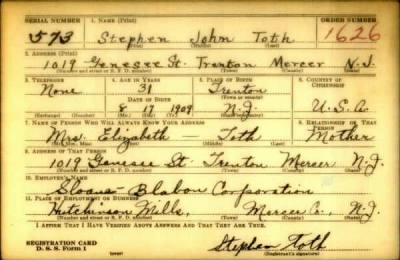 SERIAL NUMBER 1. NAME (Print) ORDER NUMBER
573 Stephen John Toth 1626
(First) (Middle) (Last)
2. ADDRESS (Print)
1019 Genesee St. Trenton Mercer N.J.
(Number and street or R. F. D. number) (Town) (County) (State)
3. TELEPHONE 4. AGE IN YEARS 5. PLACE OF BIRTH 6. COUNTRY OF CITIZENSHIP
None 31 Trenton
DATE OF BIRTH (Town or county)
8 17 1909 N.J. U.S.A.
(Exchange) (Number) (Mo.) (Day) (Yr.) (State or country)
7. NAME OF PERSON WHO WILL ALWAYS KNOW YOUR ADDRESS 8. RELATIONSHIP OF THAT PERSON
Mrs. Elizabeth — Toth Mother
(Mr., Mrs., Miss) (First) (Middle) (Last)
9. ADDRESS OF THAT PERSON
1019 Genesee St. Trenton Mercer N.J.
(Number and street or R. F. D. number) (Town) (County) (State)
10. EMPLOYER'S NAME
Sloane-Blabon Corporation
11. PLACE OF EMPLOYMENT OR BUSINESS
Hutchinson Mills, Mercer Co., N.J.
(Number and street or R. F. D. number) (Town) (County) (State)
I AFFIRM THAT I HAVE VERIFIED ABOVE ANSWERS AND THAT THEY ARE TRUE.
REGISTRATION CARD Stephen Toth
D. S. S. Form 1 (over) (Registrant's signature)